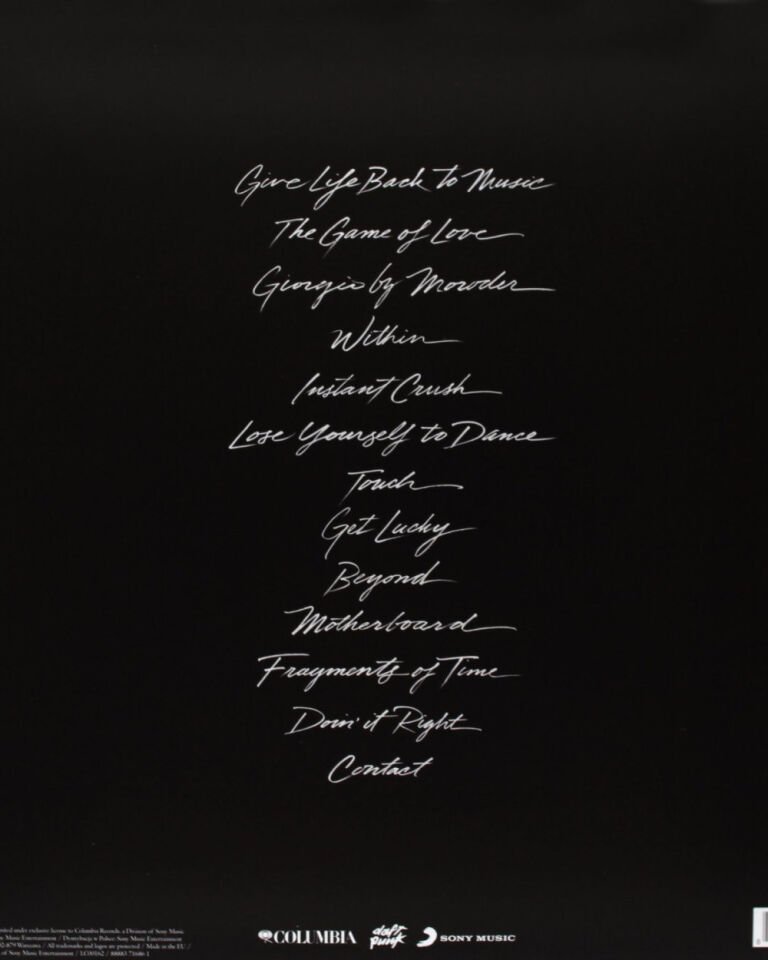 Give Life Back to Music
The Game of Love
Giorgio by Moroder
Within
Instant Crush
Lose Yourself to Dance
Touch
Get Lucky
Beyond
Motherboard
Fragments of Time
Doin' it Right
Contact
under exclusive license to Columbia Records, a Division of Sony Music
Music Entertainment / Dystrybucja w Polsce: Sony Music Entertainment
Warszawa / All trademarks and logos are protected / Made in the EU /
of Sony Music Entertainment / LC00162 / 88883 71686 1
COLUMBIA
daft punk
SONY MUSIC